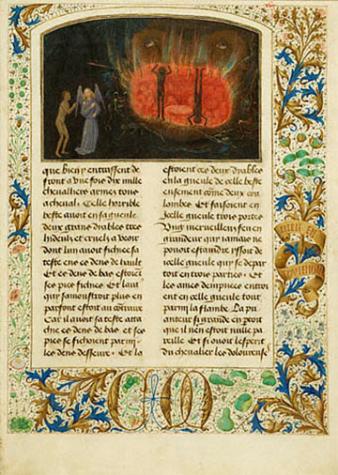 que bien y entrassent de
front a une fois dix mille
chevalliers armez tous
a cheval. Celle horrible
beste avoit en sa gueule
deux grans dyables tres
hideux et cruelz a veoir
dont lun avoit fichie sa
teste ens es dens de hault
Et es dens de bas estoient
ses piez fichies. Et lautre
qui samonstroit plus en
parfont estoit au contraire
Car il avoit sa teste atta
chee es dens de bas et ses
piez se fichoient parmi
les dens desseure. Et la
estoient ces deux dyables
en la gueule de celle beste
ensement come deux cou
lombes. Et faisoient en
icelle gueule trois portes
Ung merveilleux feu en
grandeur qui jamais ne
pouoit estaindre yssoit de
celle gueule qui se depar
toit en trois parties. Et
les ames dempnees entroi
ent en celle gueule tout
parmi la flambe. La pu
antise si grande en yssoit
que il nen estoit nulle pa
reille. Et si ouoit lesperit
du chevalier les doloureuse